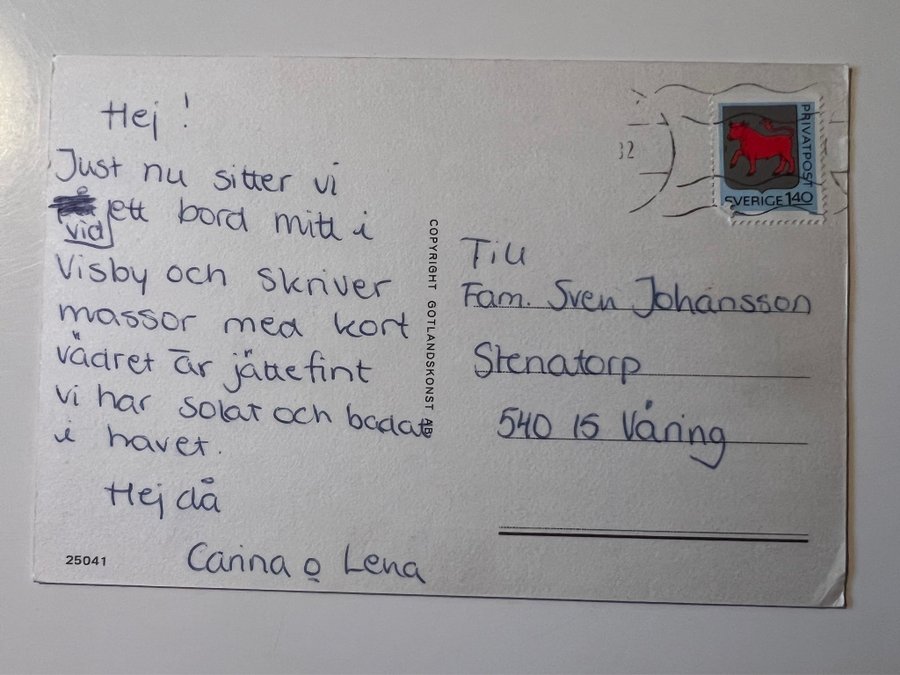 Hej!
Just nu sitter vi
vid ett bord mitt i
Visby och skriver
massor med kort
vädret är jättefint
vi har solat och badat
i havet.
Hej då
Carina o Lena
25041
COPYRIGHT GOTLANDSKONST AB
32
PRIVATPOST
SVERIGE 140
Till
Fam. Sven Johansson
Stenatorp
540 15 Våring